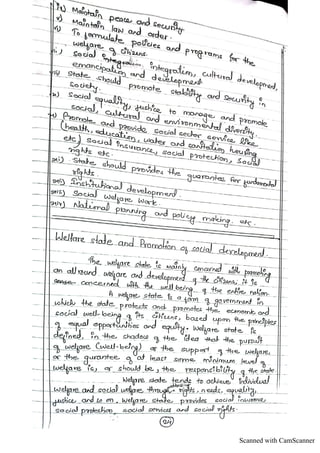 iv) Maintain peace and security
v) Maintain law and order.
vi) To formulate policies and programs for the
welfare of citizens.
vii) Social integration, integration, cultural development,
emancipation and development
viii) State should promote stability and security in
society.
ix) Social equality, justice to manage and promote
social, cultural and environmental diversity.
x) Promote and provide social sector service like
(health, education, water and sanitation, housing
etc) social insurance, social protection, social
rights etc.
xi) State should provides the guarantee for fundamental
rights.
xii) Institutional development.
xiii) Social welfare work.
xiv) National planning and policy making etc.
Welfare state and Promotion of social development
The welfare state is mainly concerned with promoting
an all round welfare and development of the citizens, it is
concerned with the well being of the entire nation.
A welfare state is a form of government in
which the state protects and promotes the economic and
social well-being of its citizens, based upon the principles
of equal opportunities and equity. Welfare state is
defined, in the shadow of the idea that the pursuit
of welfare (well-being) or the support of the welfare,
or the guarantee of at least some minimum level of
welfare is, or should be, the responsibility of the state
Welfare state tends to achieve individual
welfare and social welfare through rights, needs, equality,
justice and so on. Welfare state provides social insurance,
social protection, social services and social rights.
Scanned with CamScanner